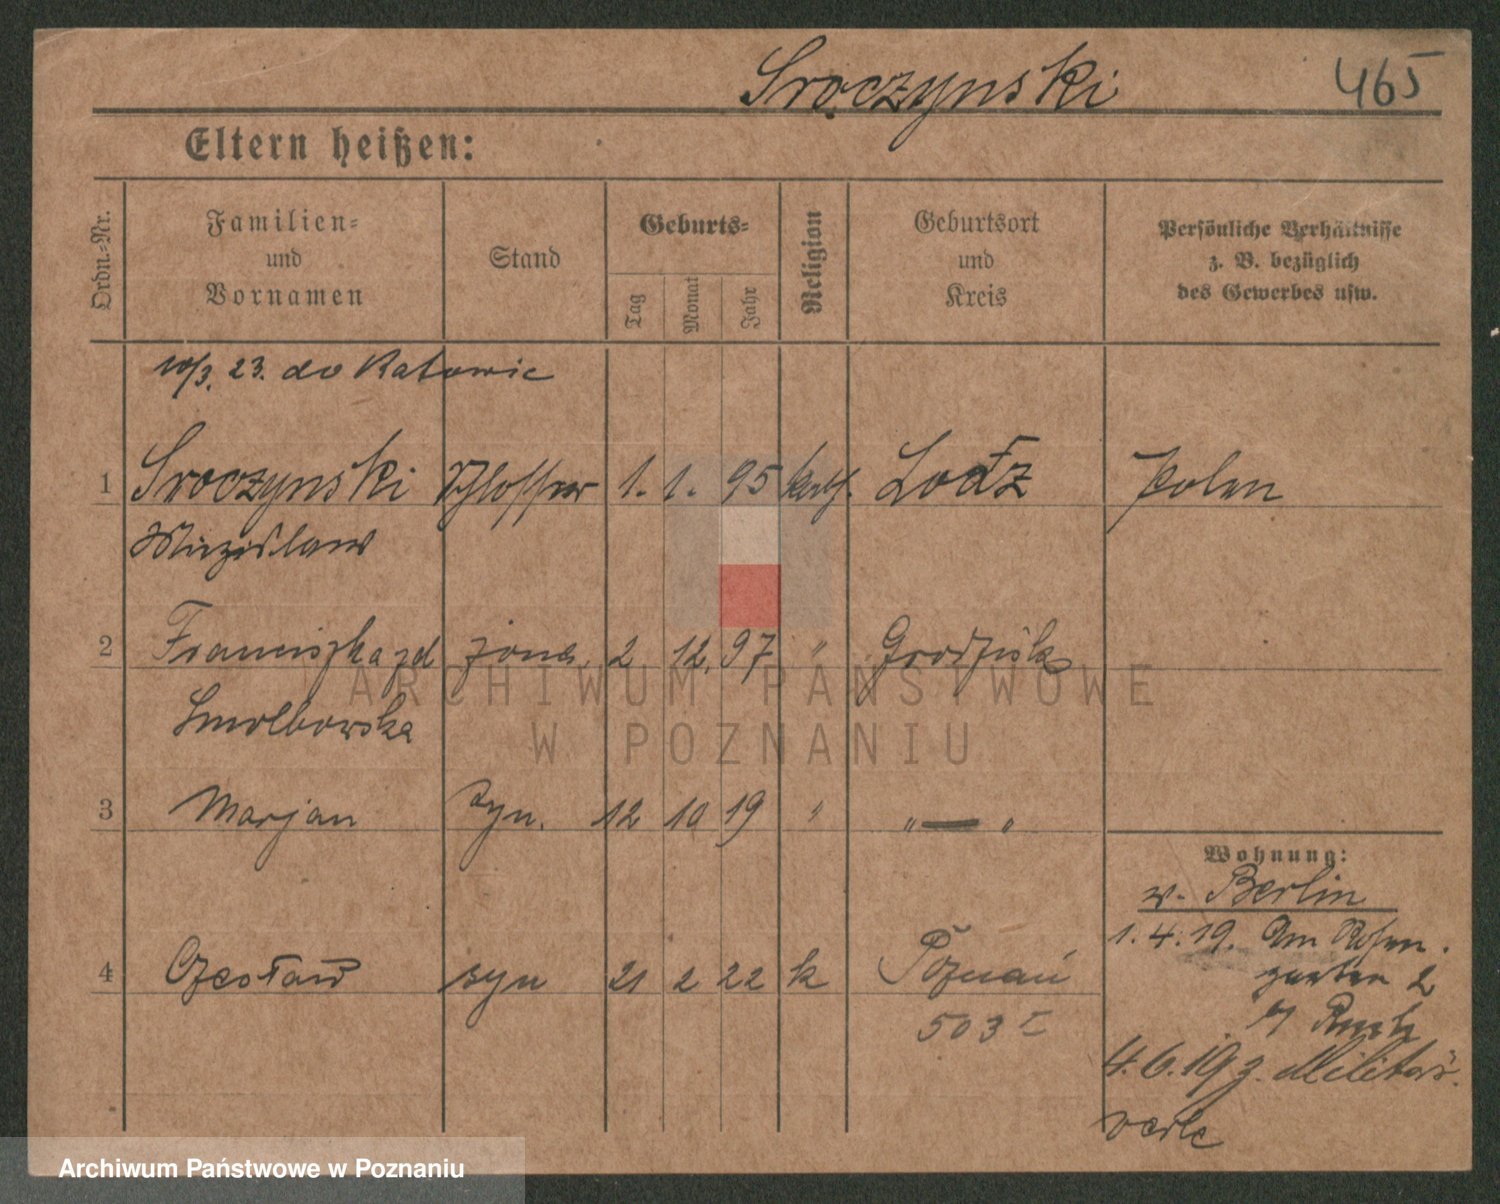 Sroczynski 465
Eltern heißen:
Ordn.-Nr.
Familien-
und
Vornamen
Stand
Geburts-
Tag
Monat
Jahr
Religion
Geburtsort
und
Kreis
Persönliche Verhältnisse
z. B. bezüglich
des Gewerbes usw.
10/3. 23. do Katowic
1 Sroczynski Schlosser 1. 1. 95 kath. Lodz Polen
Miezislaw
2 Franciszka zd żona 2 12. 97 " Grodzisk
Smolbowska
3 Marjan syn. 12 10 19 " " — "
4 Czesław syn 21 2 22 k Poznań
503 I
Wohnung:
v. Berlin
1. 4. 19. Am Rosen.
garten 2
b/
4. 6. 19 z. Militär.
ARCHIWUM PAŃSTWOWE
W POZNANIU
Archiwum Państwowe w Poznaniu